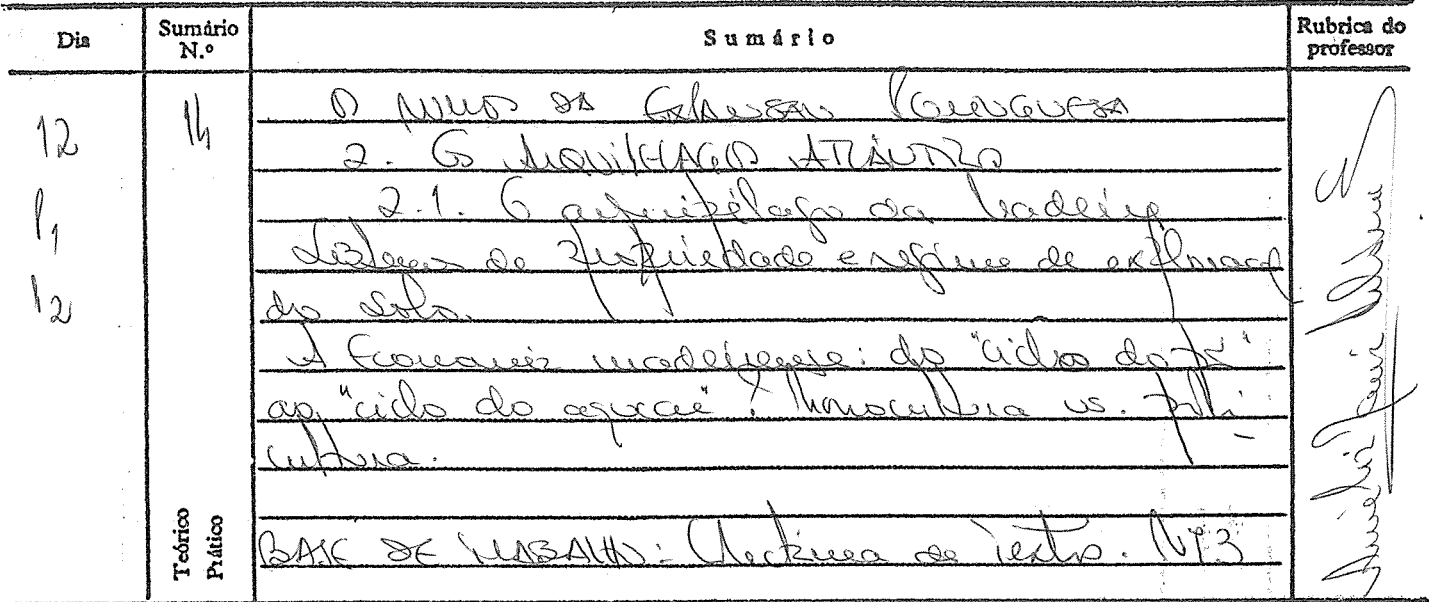 Dia
Sumário N.º
Sumário
Rubrica do professor
12
14
O da Expansão Portuguesa
2. Os Arquipélagos Atlânticos
2.1. O arquipélago da Madeira
Sistemas de propriedade e regime de exploração
do solo.
A Economia madeirense: do "ciclo do pão"
ao "ciclo do açucar". Monocultura vs. Poli-
cultura.
Teórico
Prático
BASE DE TRABALHO: Lectura de texto. Nº 3